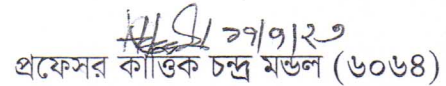 ২৭/৭/২৩
প্রফেসর কার্তিক চন্দ্র মন্ডল (৬০৬৪)